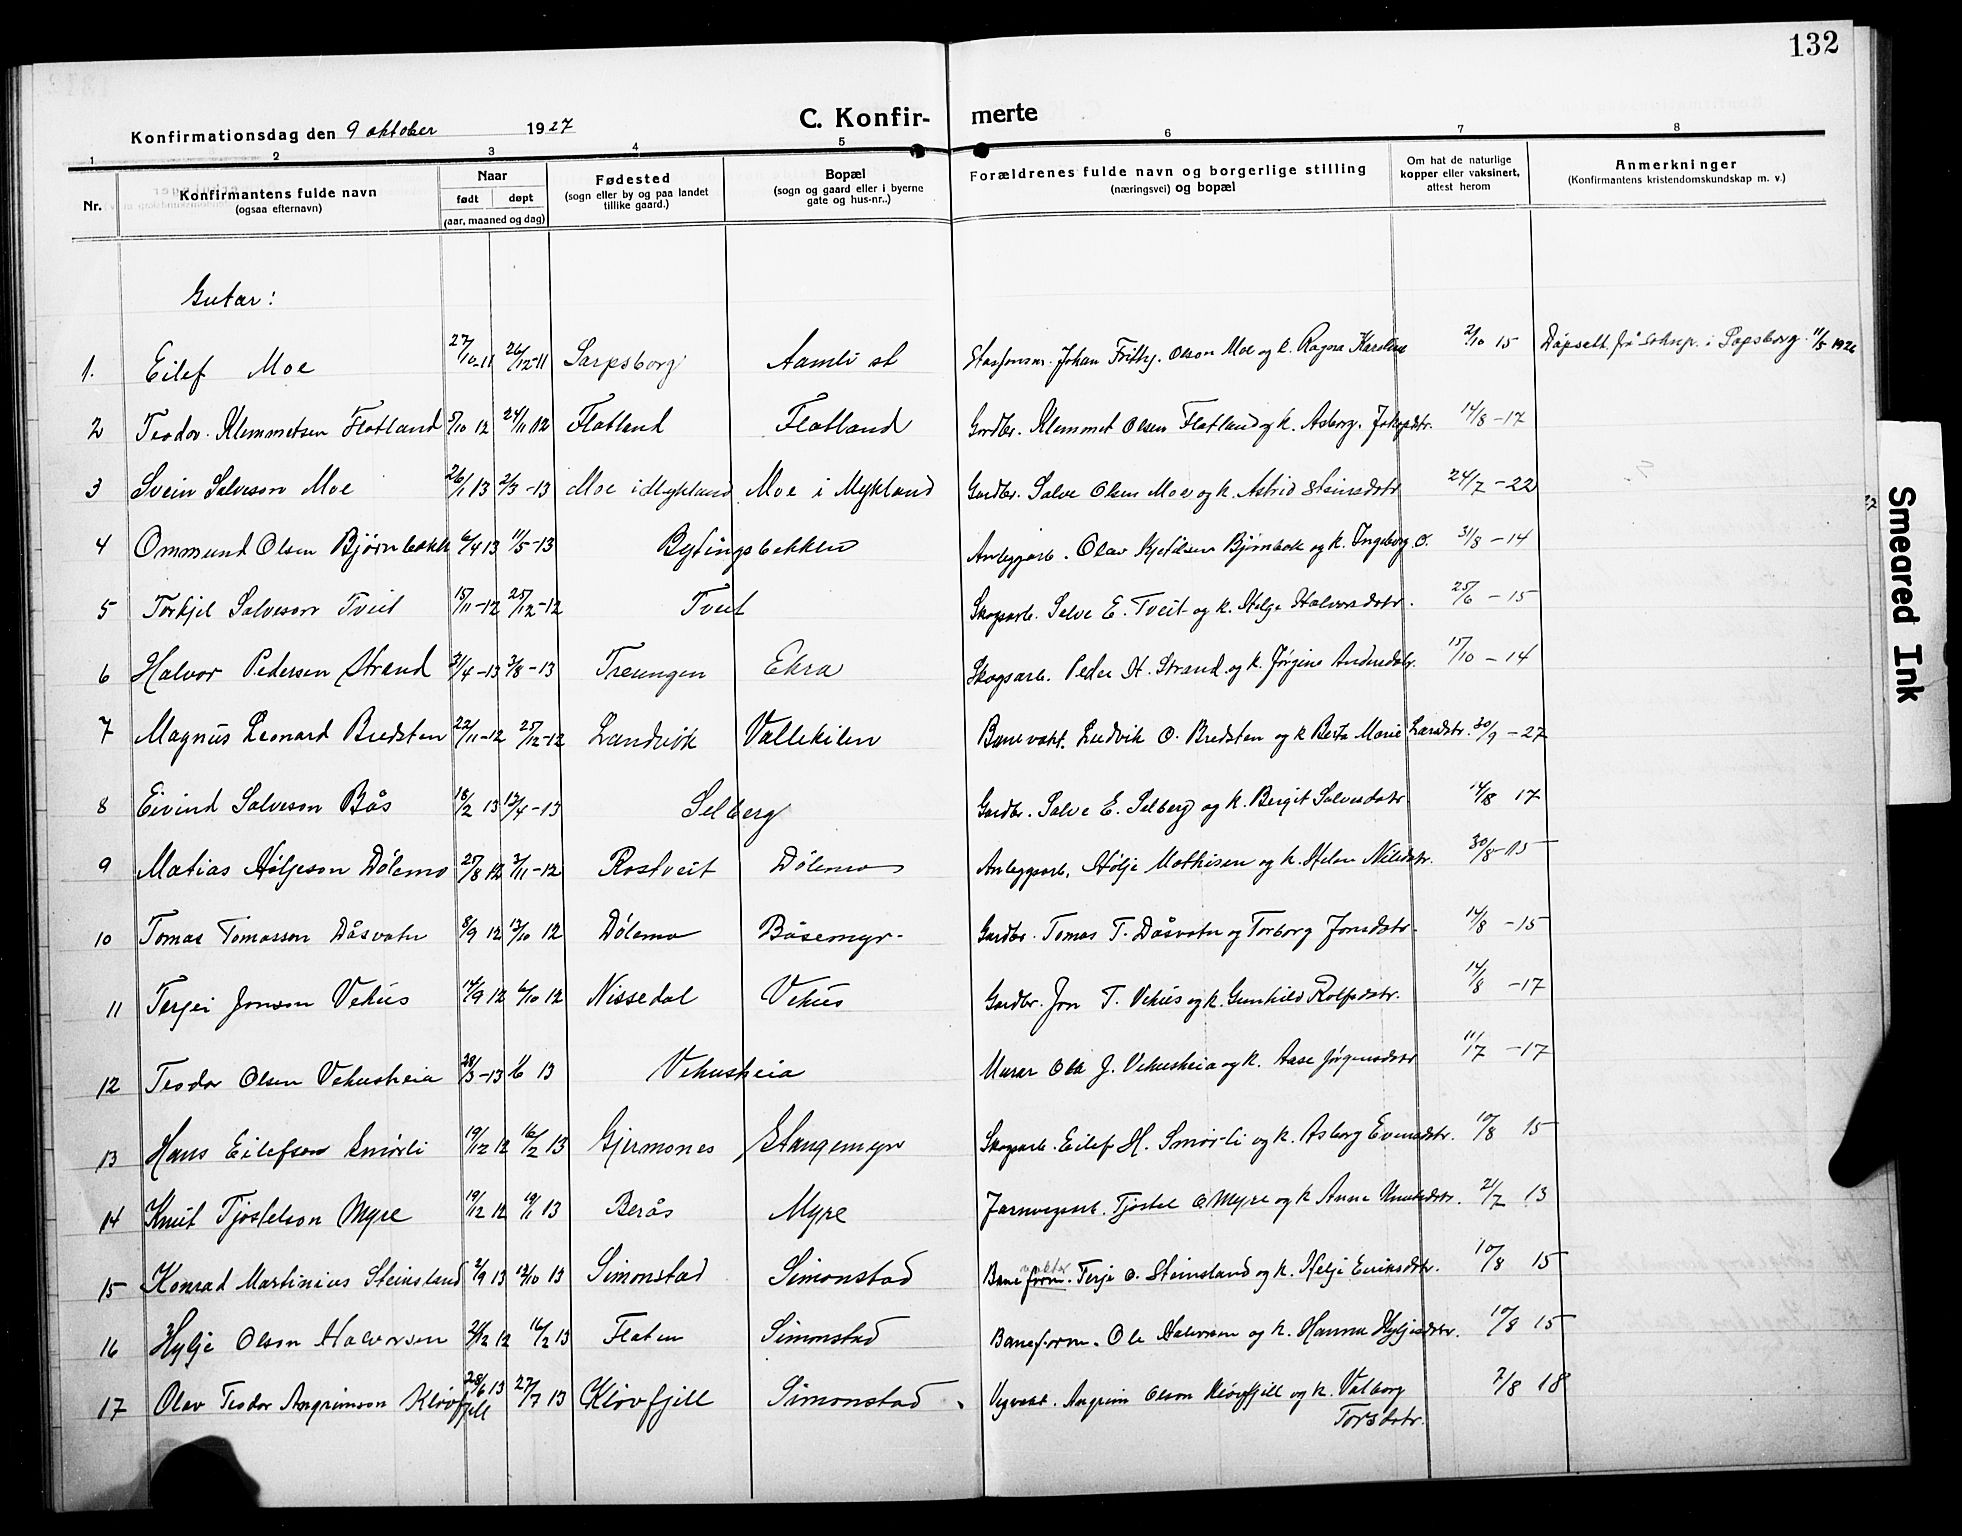 132
C. Konfirmerte
Konfirmationsdag den 9 oktober 1927
1 2 3 4 5 6 7 8
Nr. Konfirmantens fulde navn (ogsaa efternavn) Naar født døpt (aar, maaned og dag) Fødested (sogn eller by og paa landet tillike gaard.) Bopæl (sogn og gaard eller i byerne gate og hus-nr..) Forældrenes fulde navn og borgerlige stilling (næringsvei) og bopæl Om hat de naturlige kopper eller vaksinert, attest herom Anmerkninger (Konfirmantens kristendomskundskap m. v.)
Gutar:
1. Eilef Moe 27/10-11 26/12-11 Sarpsborg Aamli st Johan Olson Moe og k. Ragna Karoline 2/10 15 Dåpsatt. frå i Sapsborg 11/5 1926
2 Teodor Klemmetsen Flatland 5/10 12 24/11 12 Flatland Flatland Gardbr. Klemmet Olsen Flatland og k. Asborg Jakopdtr. 14/8-17
3 Svein Salveson Moe 26/1 13 2/3-13 Moe i Mykland Moe i Mykland Gardbr. Salve Olsen Moe og k. Astrid Steinsdotr 24/7-22
4 Ommund Olsen Bjørnbakk 6/4 13 11/5-13 Bytingsbekken Anleggsarb. Olav Kjetilsen Bjørnbak og k. Ingeborg O. 31/8-14
5 Torkjel Salveson Tveit 15/11-12 25/12-12 Tveit Skogsarb. Salve E. Tveit og k. Helge Halvorsdotr. 25/6-15
6 Halvor Pedersen Strand 21/4-13 3/8-13 Treungen Ekra Skogsarb. Peder H. Strand og k. Jørgine Andersdotr. 15/10-14
7 Magnus Leonard Bredsten 22/11-12 25/12-12 Landvik Vallekilen Banevakt. Ludvik O. Bredsten og k Berta Marie Larsdtr. 30/9-27
8 Eivind Salveson Bås 18/2 13 13/4-13 Selberg Gardbr. Salve E. Selberg og k. Bergit Salvesdotr 14/8 17
9 Matias Høljeson Dølemo 25/8 12 3/11-12 Rostveit Dølemo Anleggsarb. Hølje Mathisen og k. Helen Nilsdtr. 30/8-15
10 Tomas Tomasson Dåsvatn 8/9 12 13/10 12 Dölemo Båsemyr. Gardbr. Tomas T. Dåsvatn og Torborg Jonsdotr. 14/8-15
11 Terjei Jonson Vehus 14/9 12 6/10 12 Nissedal Vehus Gardbr. Jon T. Vehus og k. Gunhild Rolfsdotr. 14/8-17
12 Teodor Olsen Vehusheia 28/3-13 1/6 13 Vehusheia Murar Ola J. Vehusheia og k. Aase Jörgensdotr 11/7-17
13 Hans Eilefson Smørli 19/12 12 16/2 13 Gjermones Stangemyr Skogsarb. Eilef H. Smørli og k. Asborg Evensdtr. 10/8 15
14 Knut Tjostelson Myre 19/12 12 19/1 13 Berås Myre Jarnvegsarb. Tjostel O Myre og k Anne Knutsdotr. 21/7 13
15 Konrad Martinius Steinsland 2/9 13 12/10 13 Simonstad Simonstad Baneform. vakter Terje O. Steinsland og k. Helje Eriksdtr. 10/8 15
16 Hylje Olson Halvorsen 21/12 12 16/2 13 Flaten Simonstad Baneform. Ole Halvorsen og k. Hanna Hyljesdotr. 10/8 15
17 Olav Teodor Angrimson Kløvfjill 28/6 13 27/7 13 Kløvfjill Simonstad Vegvakt. Angrim Olson Kløvfjill og k. Valborg Torsdotr. 7/8 18
Smeared Ink